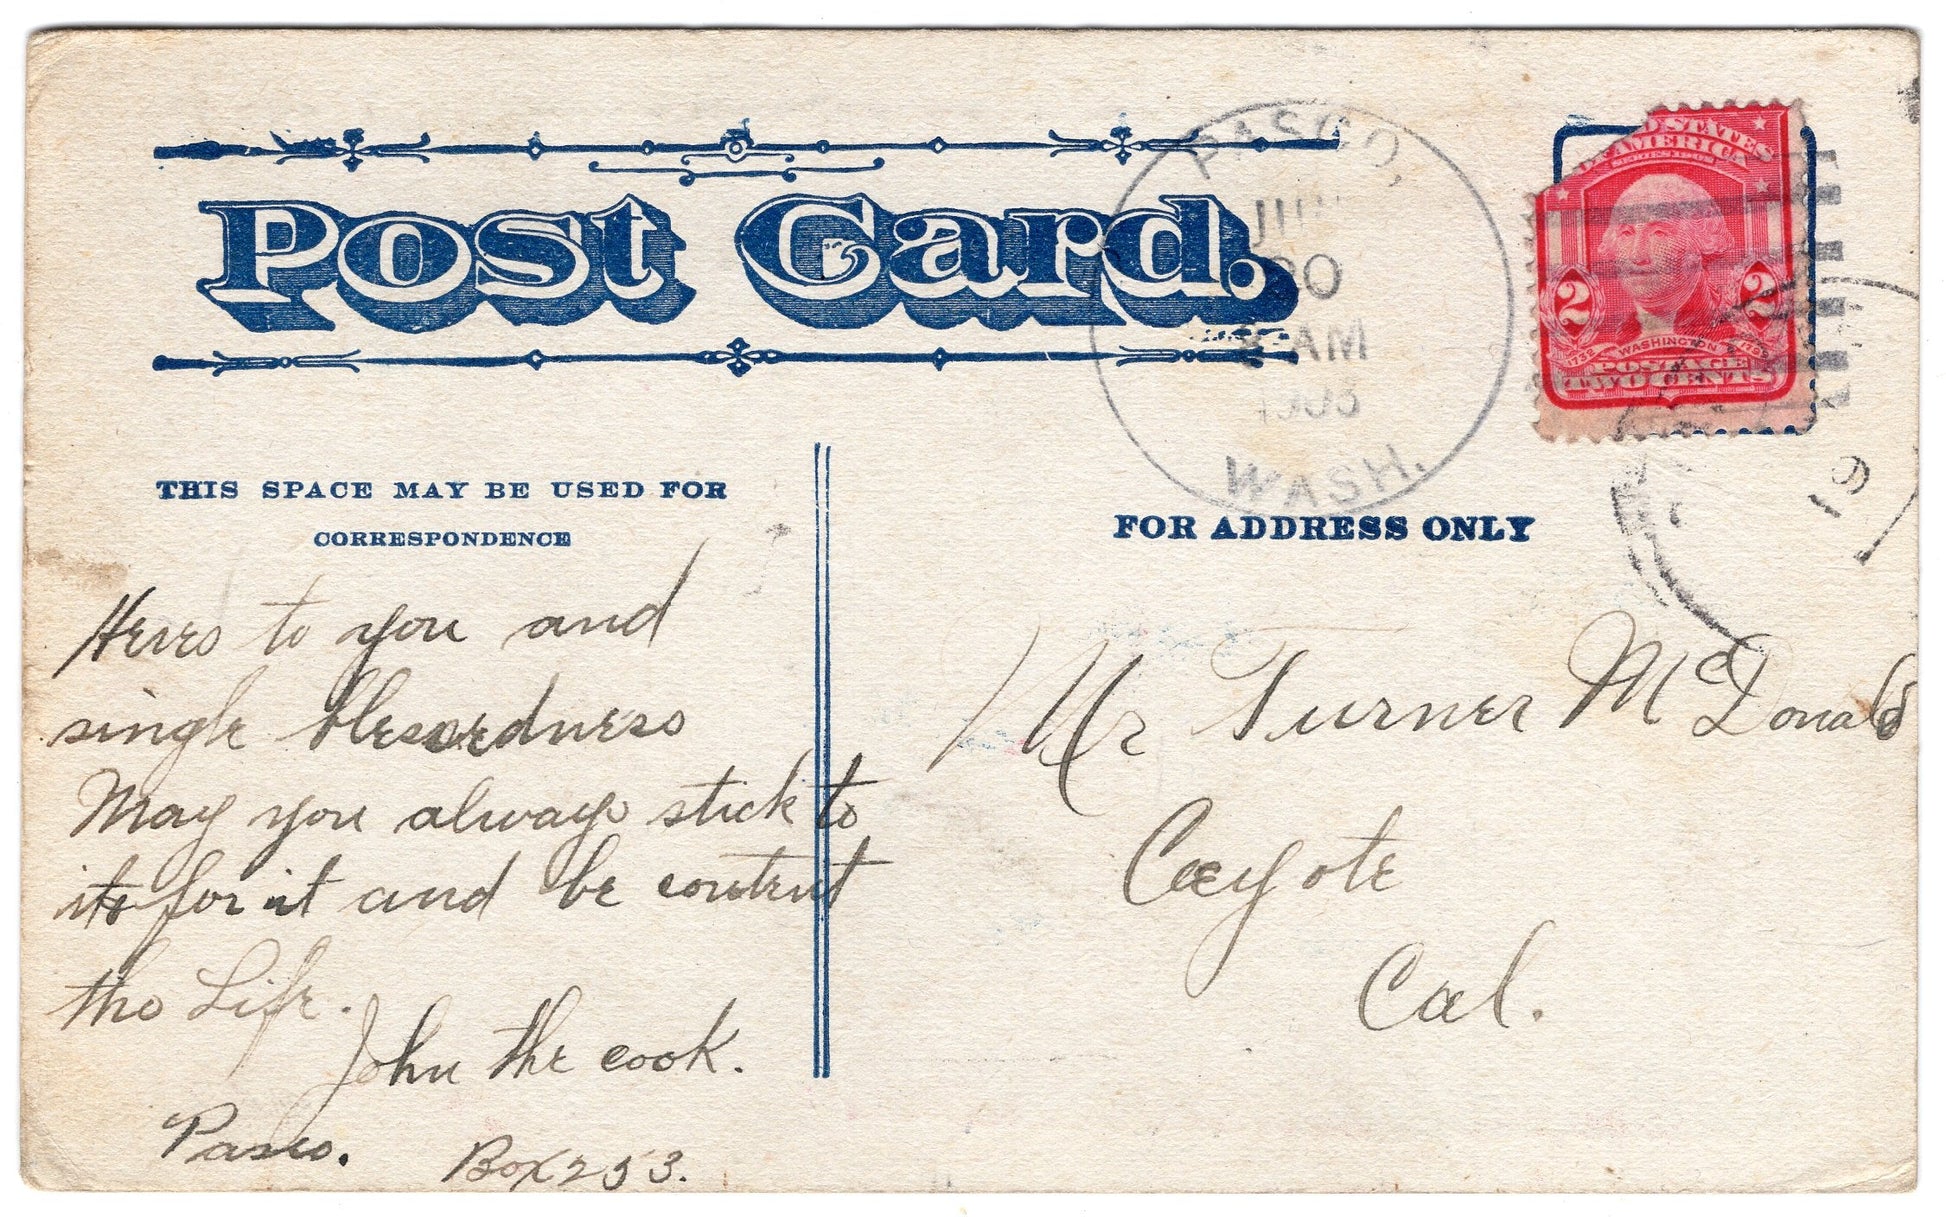 Post Card.
PASCO,
30
AM
WASH.
UNITED STATES
OF AMERICA
2 2
1732 WASHINGTON 1799
POSTAGE
TWO CENTS
THIS SPACE MAY BE USED FOR
CORRESPONDENCE
FOR ADDRESS ONLY
Heres to you and
single blessedness
May you always stick to
it for it and be content
tho Life.
John the cook.
Pasco. Box 253.
Mr Turner McDonald
Coyote
Cal.